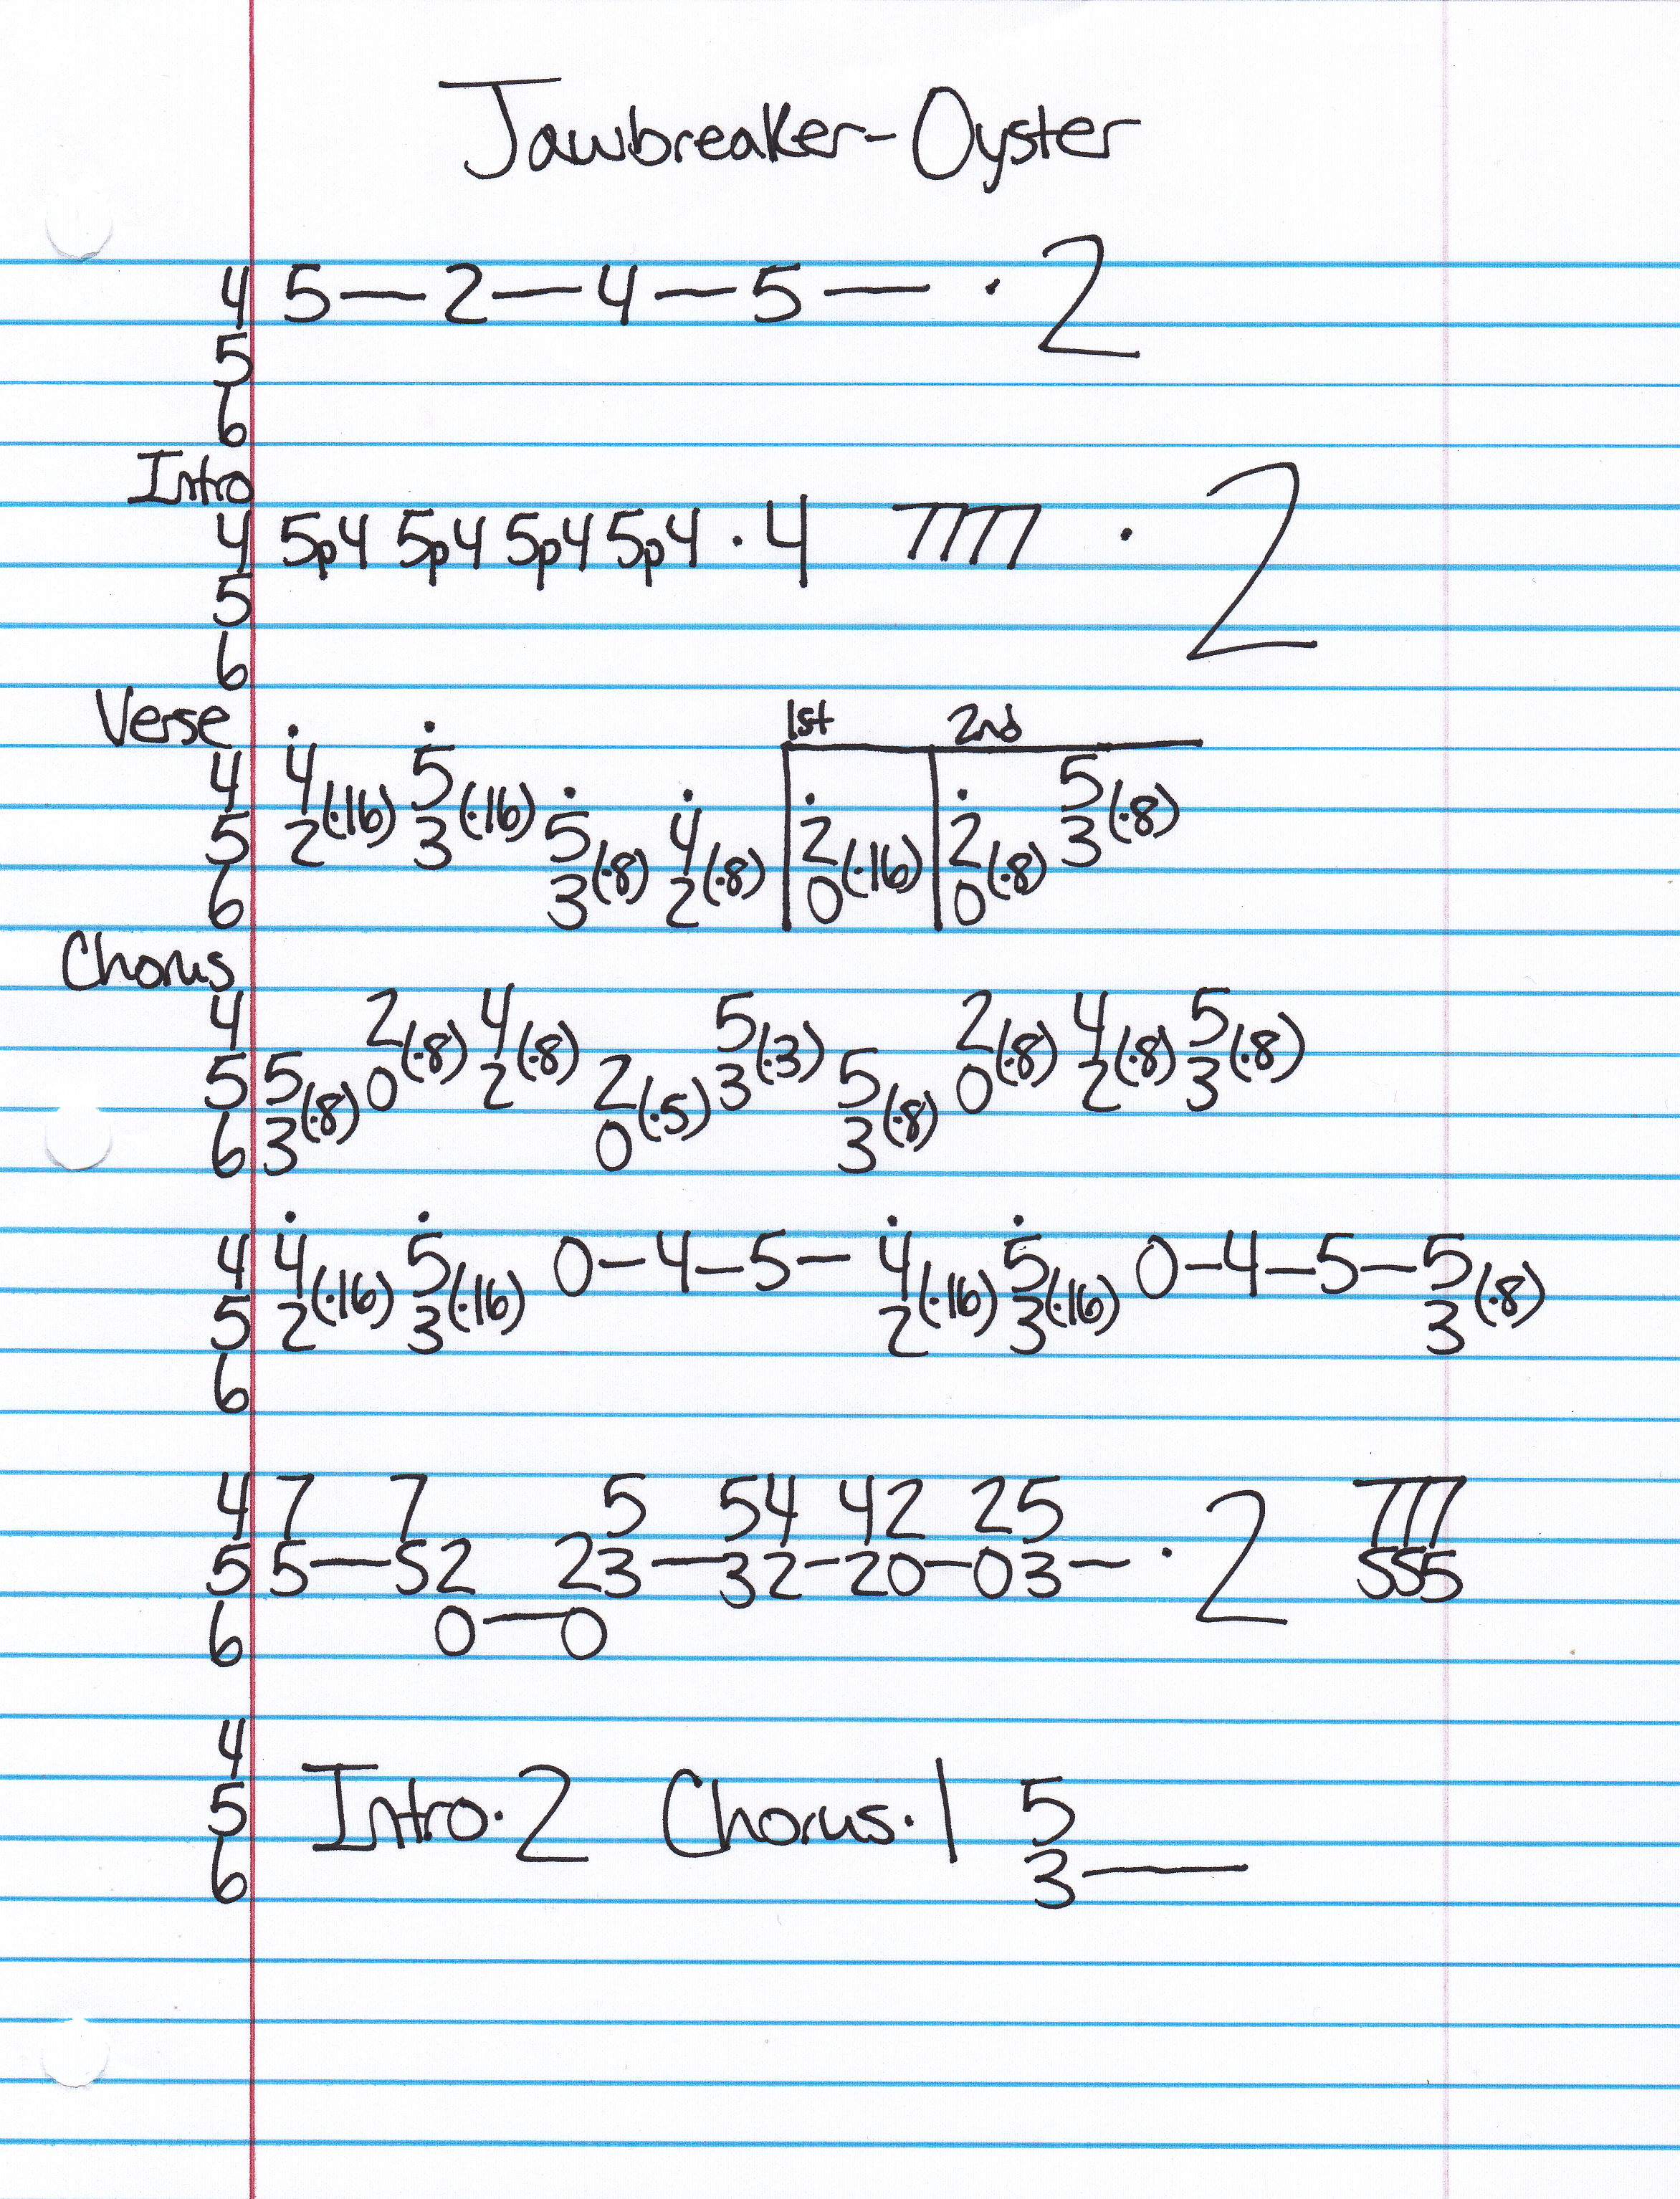 Jawbreaker - Oyster
4 5 — 2 — 4 — 5 — · 2
5
6
Intro
4 5p4 5p4 5p4 5p4 · 4 7777 · 2
5
6
Verse 1st 2nd
4 4 5 5
5 2 (·16) 3 (·16) 5 4 2 (·16) 2 (·8) 3 (·8)
6 3 (·8) 2 (·8) 0 0
Chorus
4 2 4 5 2 4 5
5 5 0 (·8) 2 (·8) 2 3 (·3) 5 0 (·8) 2 (·8) 3 (·8)
6 3 (·8) 0 (·5) 3 (·8)
4 4 5 0 — 4 — 5 — 4 5 0 — 4 — 5 — 5
5 2 (·16) 3 (·16) 2 (·16) 3 (·16) 3 (·8)
6
4 7 7 5 54 42 25 777
5 5 — 52 23 — 32 — 20 — 03 — · 2 555
6 0 — 0
4
5 Intro · 2 Chorus · 1 5
6 3 —